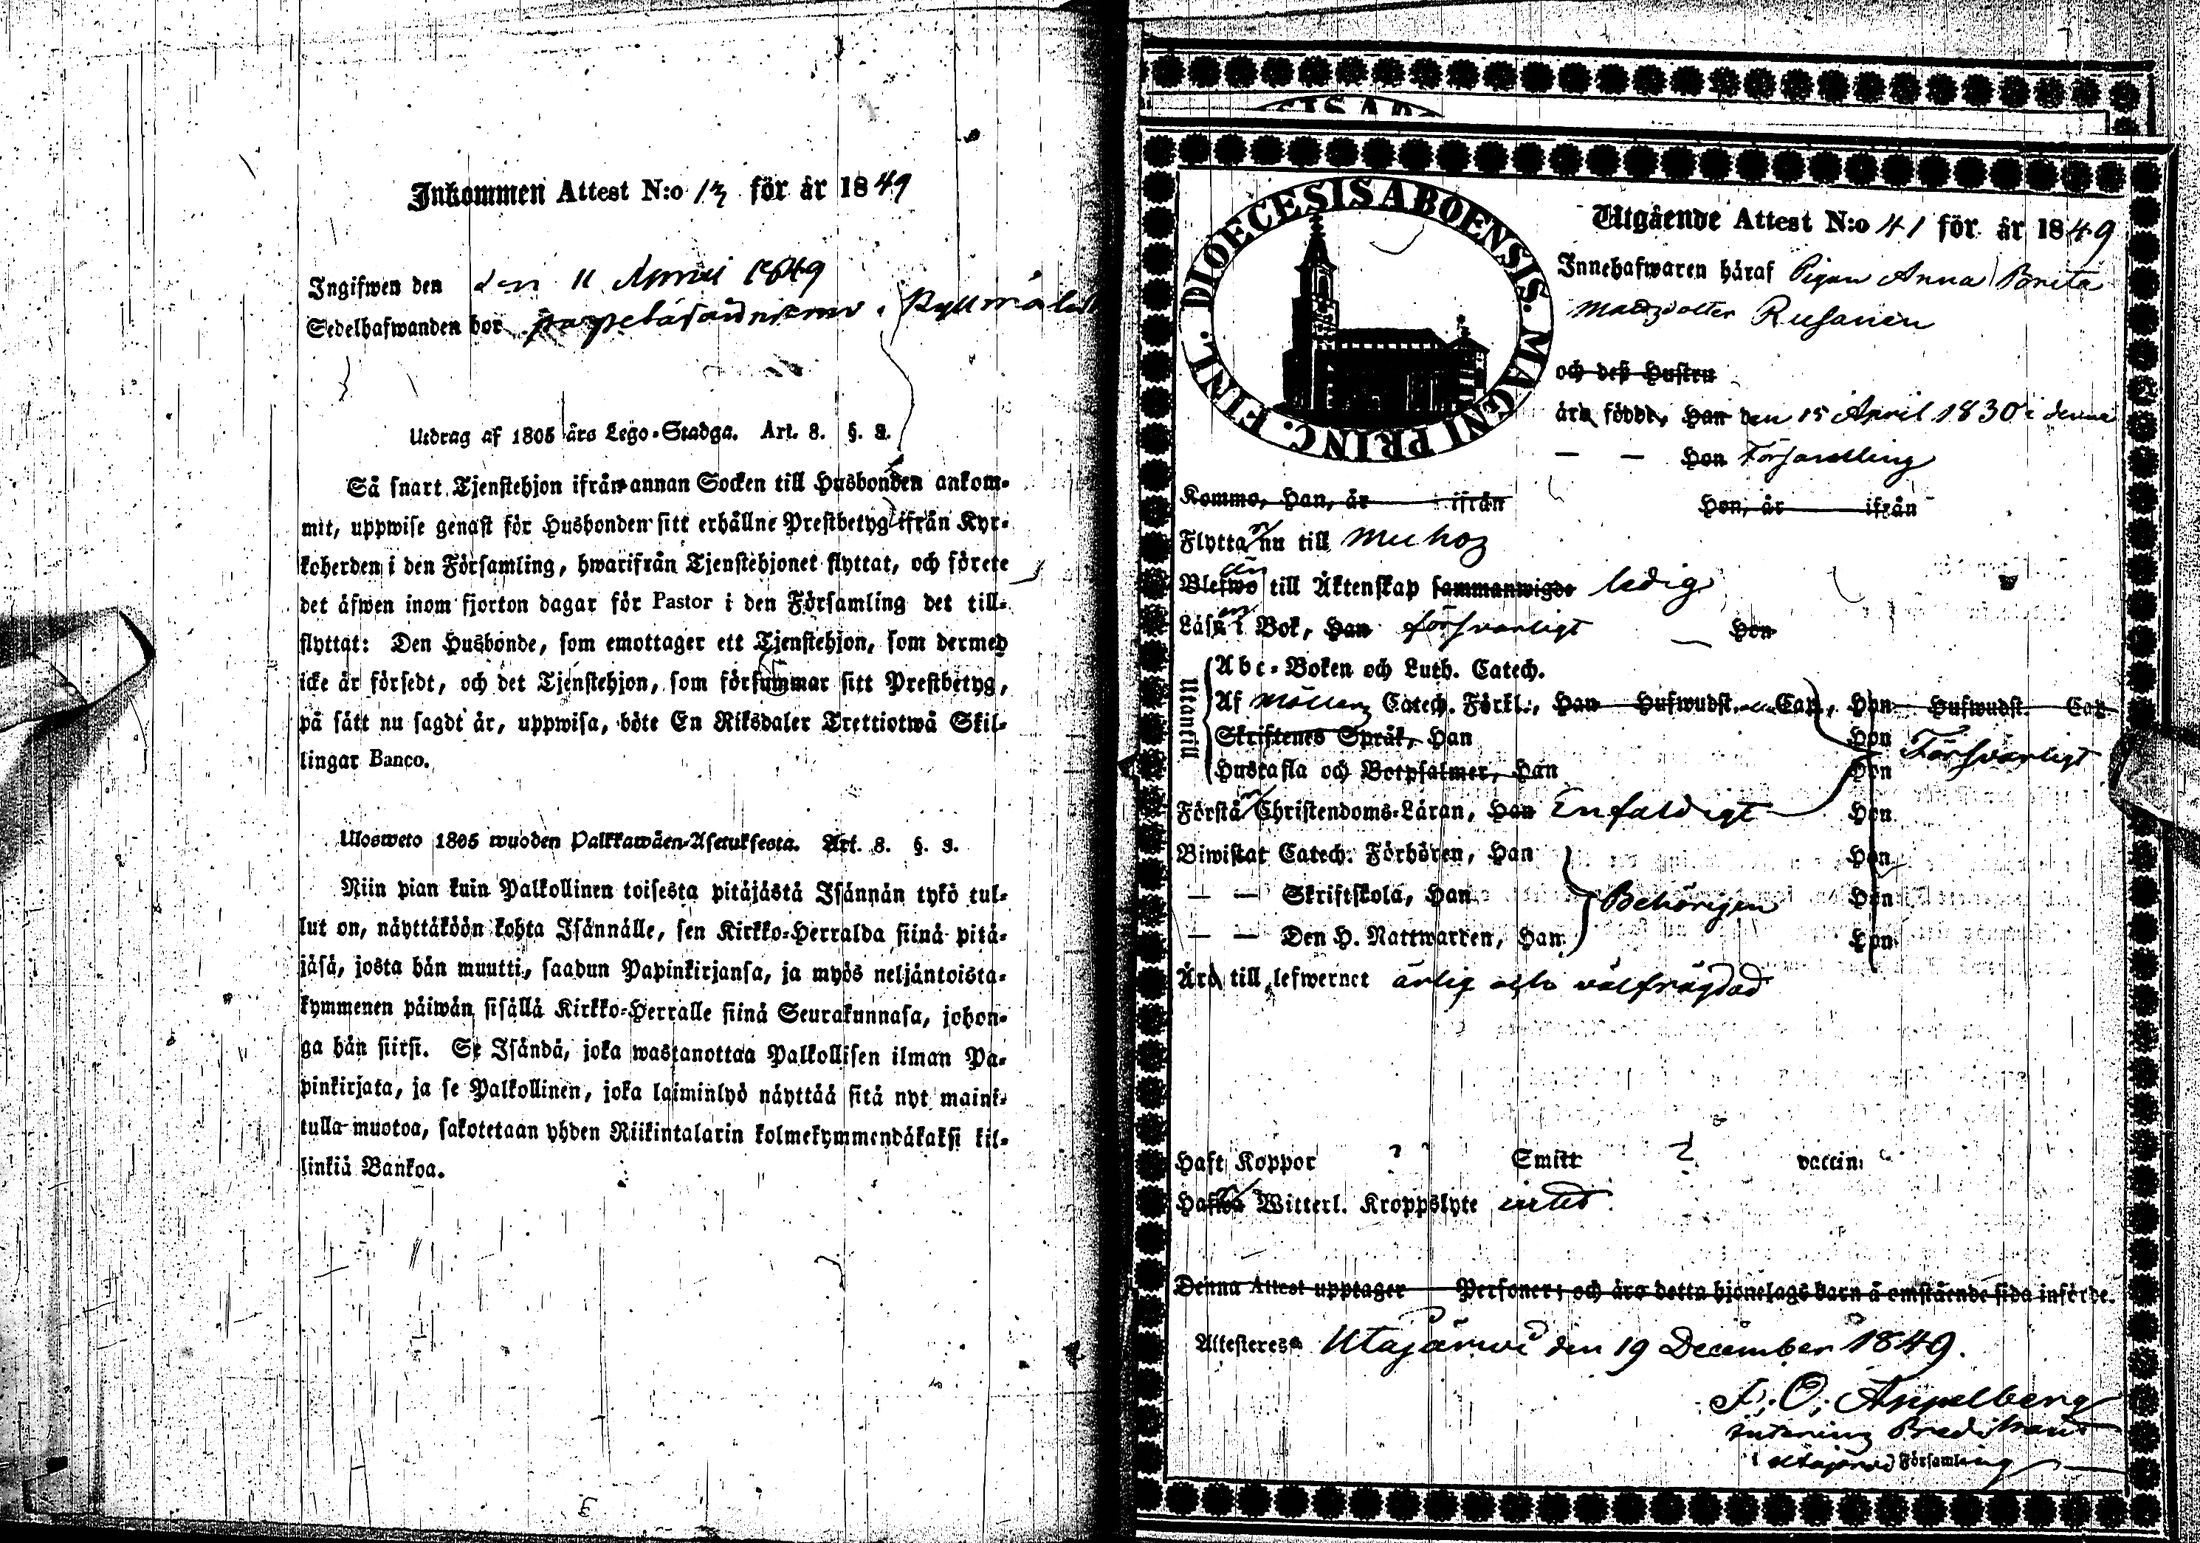 Inkommen Attest N:o 13 för år 1849
Ingifwen den den 11 April 1849
Sedelhafwanden bor
Utdrag af 1805 års Lego-Stadga. Art. 8. §. 3.
Så snart Tjenstehjon ifrån annan Socken till Husbonden ankom-
mit, uppwise genast för Husbonden sitt erhållne Prestbetyg ifrån Kyr-
koherden i den Församling, hwarifrån Tjenstehjonet flyttat, och förete
det äfwen inom fjorton dagar för Pastor i den Församling det till-
flyttat: Den Husbonde, som emottager ett Tjenstehjon, som dermed
icke är försedt, och det Tjenstehjon, som försummar sitt Prestbetyg,
på sätt nu sagdt är, uppwisa, böte En Riksdaler Trettiotwå Skil-
lingar Banco.
Ulosweto 1805 wuoden Palkkawäen-Asetuksesta. Art. 8. §. 3.
Niin pian kuin Palkollinen toisesta pitäjästä Isännän tykö tul-
lut on, näyttäköön kohta Isännälle, sen Kirkko-Herralda siinä pitä-
jäsä, josta hän muutti, saadun Papinkirjansa, ja myös neljäntoista-
kymmenen päiwän sisällä Kirkko-Herralle siinä Seurakunnasa, johon-
ga hän siirsi. Se Isändä, joka wastanottaa Palkollisen ilman Pa-
pinkirjata, ja se Palkollinen, joka laiminlyö näyttää sitä nyt maini-
tulla muotoa, sakotetaan yhden Riikintalarin kolmekymmendäkaksi kil-
linkiä Bankoa.
DIOECESIS ABOENSIS. MAGNI PRINC. FINL.
Utgående Attest N:o 41 för år 1849
Innehafwaren häraf Pigan Anna Brita
Matzdotter Rusanen
och deß Hustru
äro födde, Han den 15 April 1830 i denna
— — Hon Församling
Kommo, Han, år ifrån Hon, år ifrån
Flytta nu till Muhos
Blefwo till Äktenskap sammanwigde ledig
Läsa i Bok, Han försvarligt Hon
Utantill
Abc-Boken och Luth. Catech.
Af Möllers Catech. Förkl., Han Hufwudst. Cap., Hon Hufwudst. Cap
Skriftenes Språk, Han Hon Försvarligt
Hustafla och Botpsalmer, Han Hon
Förstå Christendoms-Läran, Han Enfaldigt Hon
Biwistat Catech. Förhören, Han Hon
— — Skriftskola, Han Behörigen Hon
— — Den H. Nattwarden, Han Hon
Äro till lefwernet ärlig och välfrägdad
Haft Koppor ? Smitt ? vaccin:
Hafwa Witterl. Kroppslyte intet
Denna Attest upptager Personer; och äro detta hjonelags barn å omstående sida införde.
Attesteres Utajärwi den 19 December 1849.
J. O. Appelberg
i Utajärwi Församling